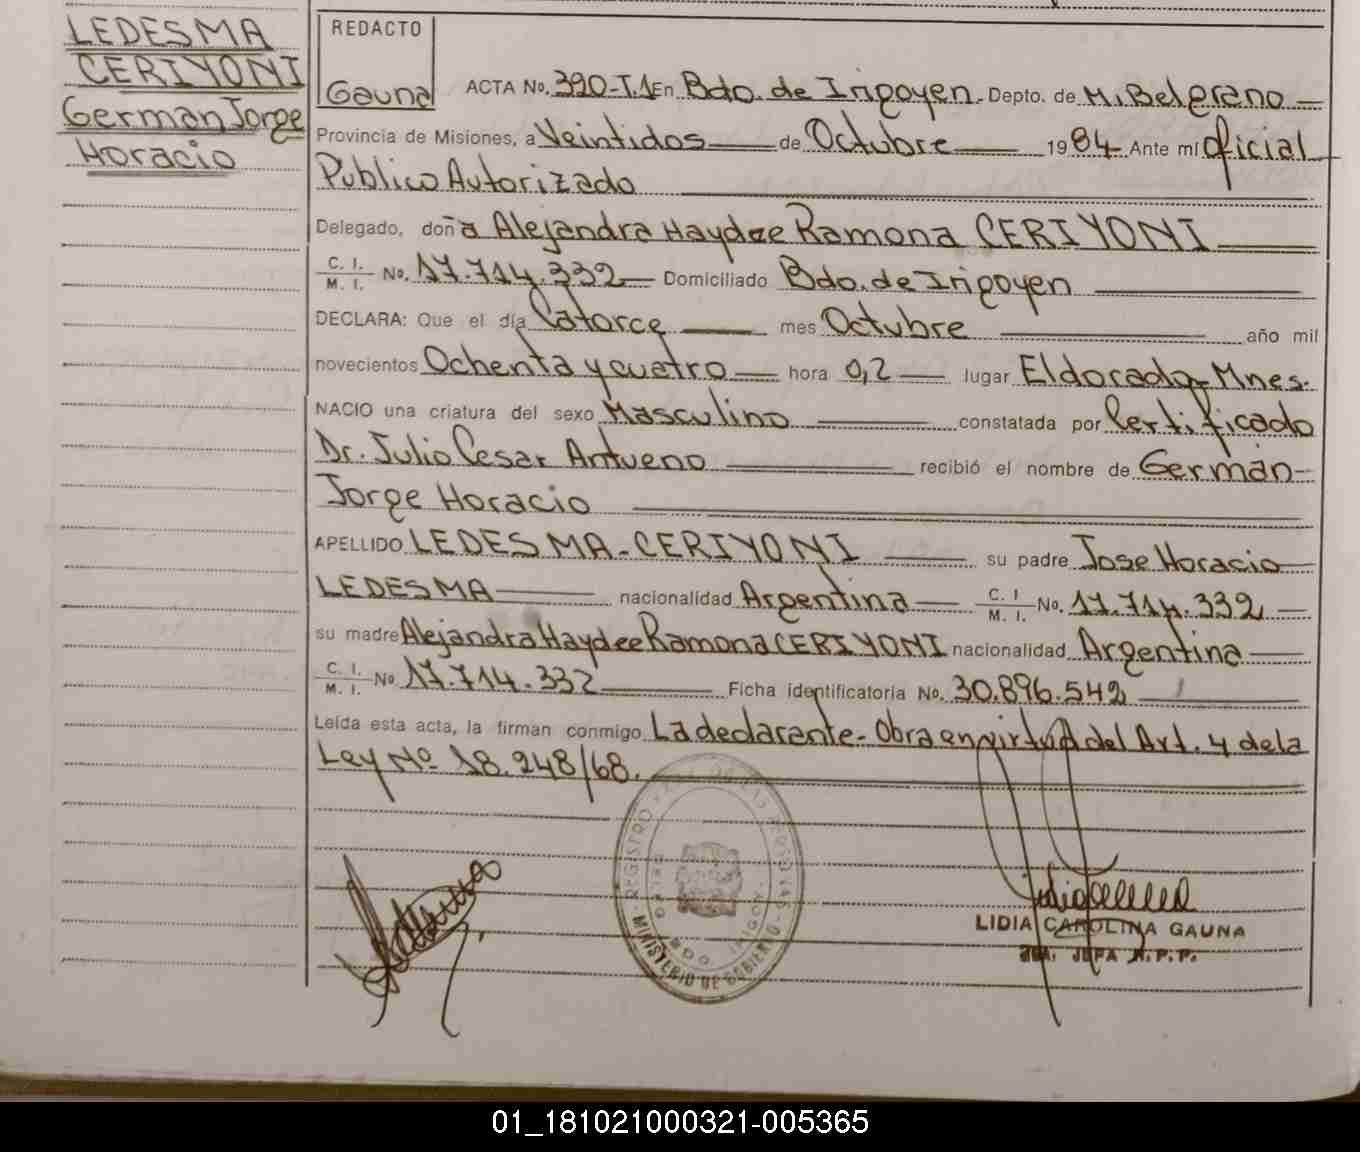 LEDESMA
CERIYONI
German Jorge
Horacio
REDACTO
Gauna
ACTA No. 390-T.1 En Bdo. de Irigoyen. Depto. de M. Belgrano —
Provincia de Misiones, a Veintidos — de Octubre — 1984 Ante mí oficial
Publico Autorizado
Delegado, doña Alejandra Haydee Ramona CERIYONI —
C. I.
M. I. No. 17.714.332 — Domiciliado Bdo. de Irigoyen —
DECLARA: Que el día Catorce — mes Octubre — año mil
novecientos Ochenta y cuatro — hora 0,2 — lugar Eldorado-Mnes.
NACIO una criatura del sexo Masculino — constatada por Certificado
Dr. Julio Cesar Antueno — recibió el nombre de Germán-
Jorge Horacio —
APELLIDO LEDESMA-CERIYONI — su padre Jose Horacio
LEDESMA — nacionalidad Argentina — C. I
M. I. No. 17.714.332 —
su madre Alejandra Haydee Ramona CERIYONI nacionalidad Argentina —
C. I.
M. I. No 17.714.332 — Ficha identificatoria No. 30.896.542 —
Leída esta acta, la firman conmigo La declarante-Obra en virtud del Art. 4 de la
Ley Nº 18.248/68.
REGISTRO
MINISTERIO DE GOBIERNO
LIDIA CAROLINA GAUNA
JEFA R.P.P.
01_181021000321-005365